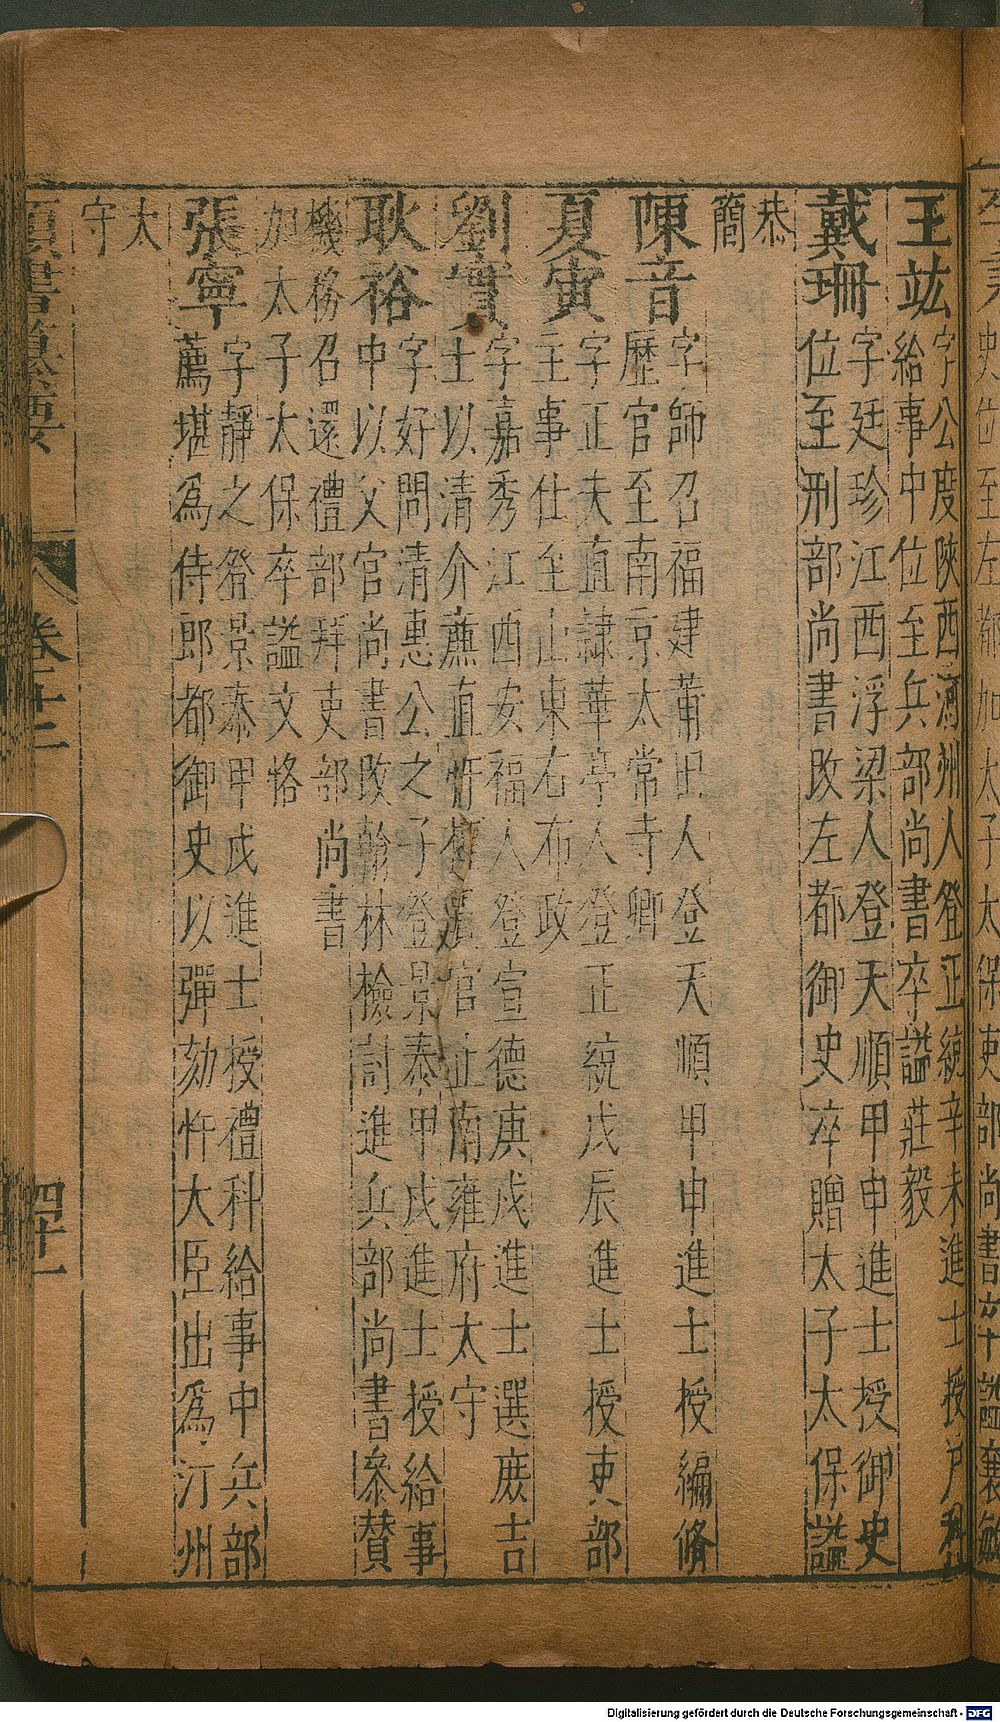 史位至左都加太子太保吏部尚書卒謚襄敏
王竑
字公度陝西河州人登正統辛未進士授戶科
給事中位至兵部尚書卒謚莊毅
戴珊
字廷珍江西浮梁人登天順甲申進士授御史
位至刑部尚書改左都御史卒贈太子太保謚
恭
簡
陳音
字師召福建莆田人登天順甲申進士授編脩
歷官至南京太常寺卿
夏寅
字正夫直隸華亭人登正統戊辰進士授吏部
主事仕至山東右布政
劉實
字嘉秀江西安福人登宣德庚戌進士選庶吉
士以清介廉直忤權官止南雍府太守
耿裕
字好問清惠公之子登景泰甲戌進士授給事
中以父官尚書改翰林檢討進兵部尚書參贊
機務召還禮部拜吏部尚書
加太子太保卒謚文恪
張寧
字靜之登景泰甲戌進士授禮科給事中兵部
薦堪為侍郎都御史以彈劾忤大臣出為汀州
太
守
類書纂要
卷二十二
四十一
Digitalisierung gefördert durch die Deutsche Forschungsgemeinschaft - DFG